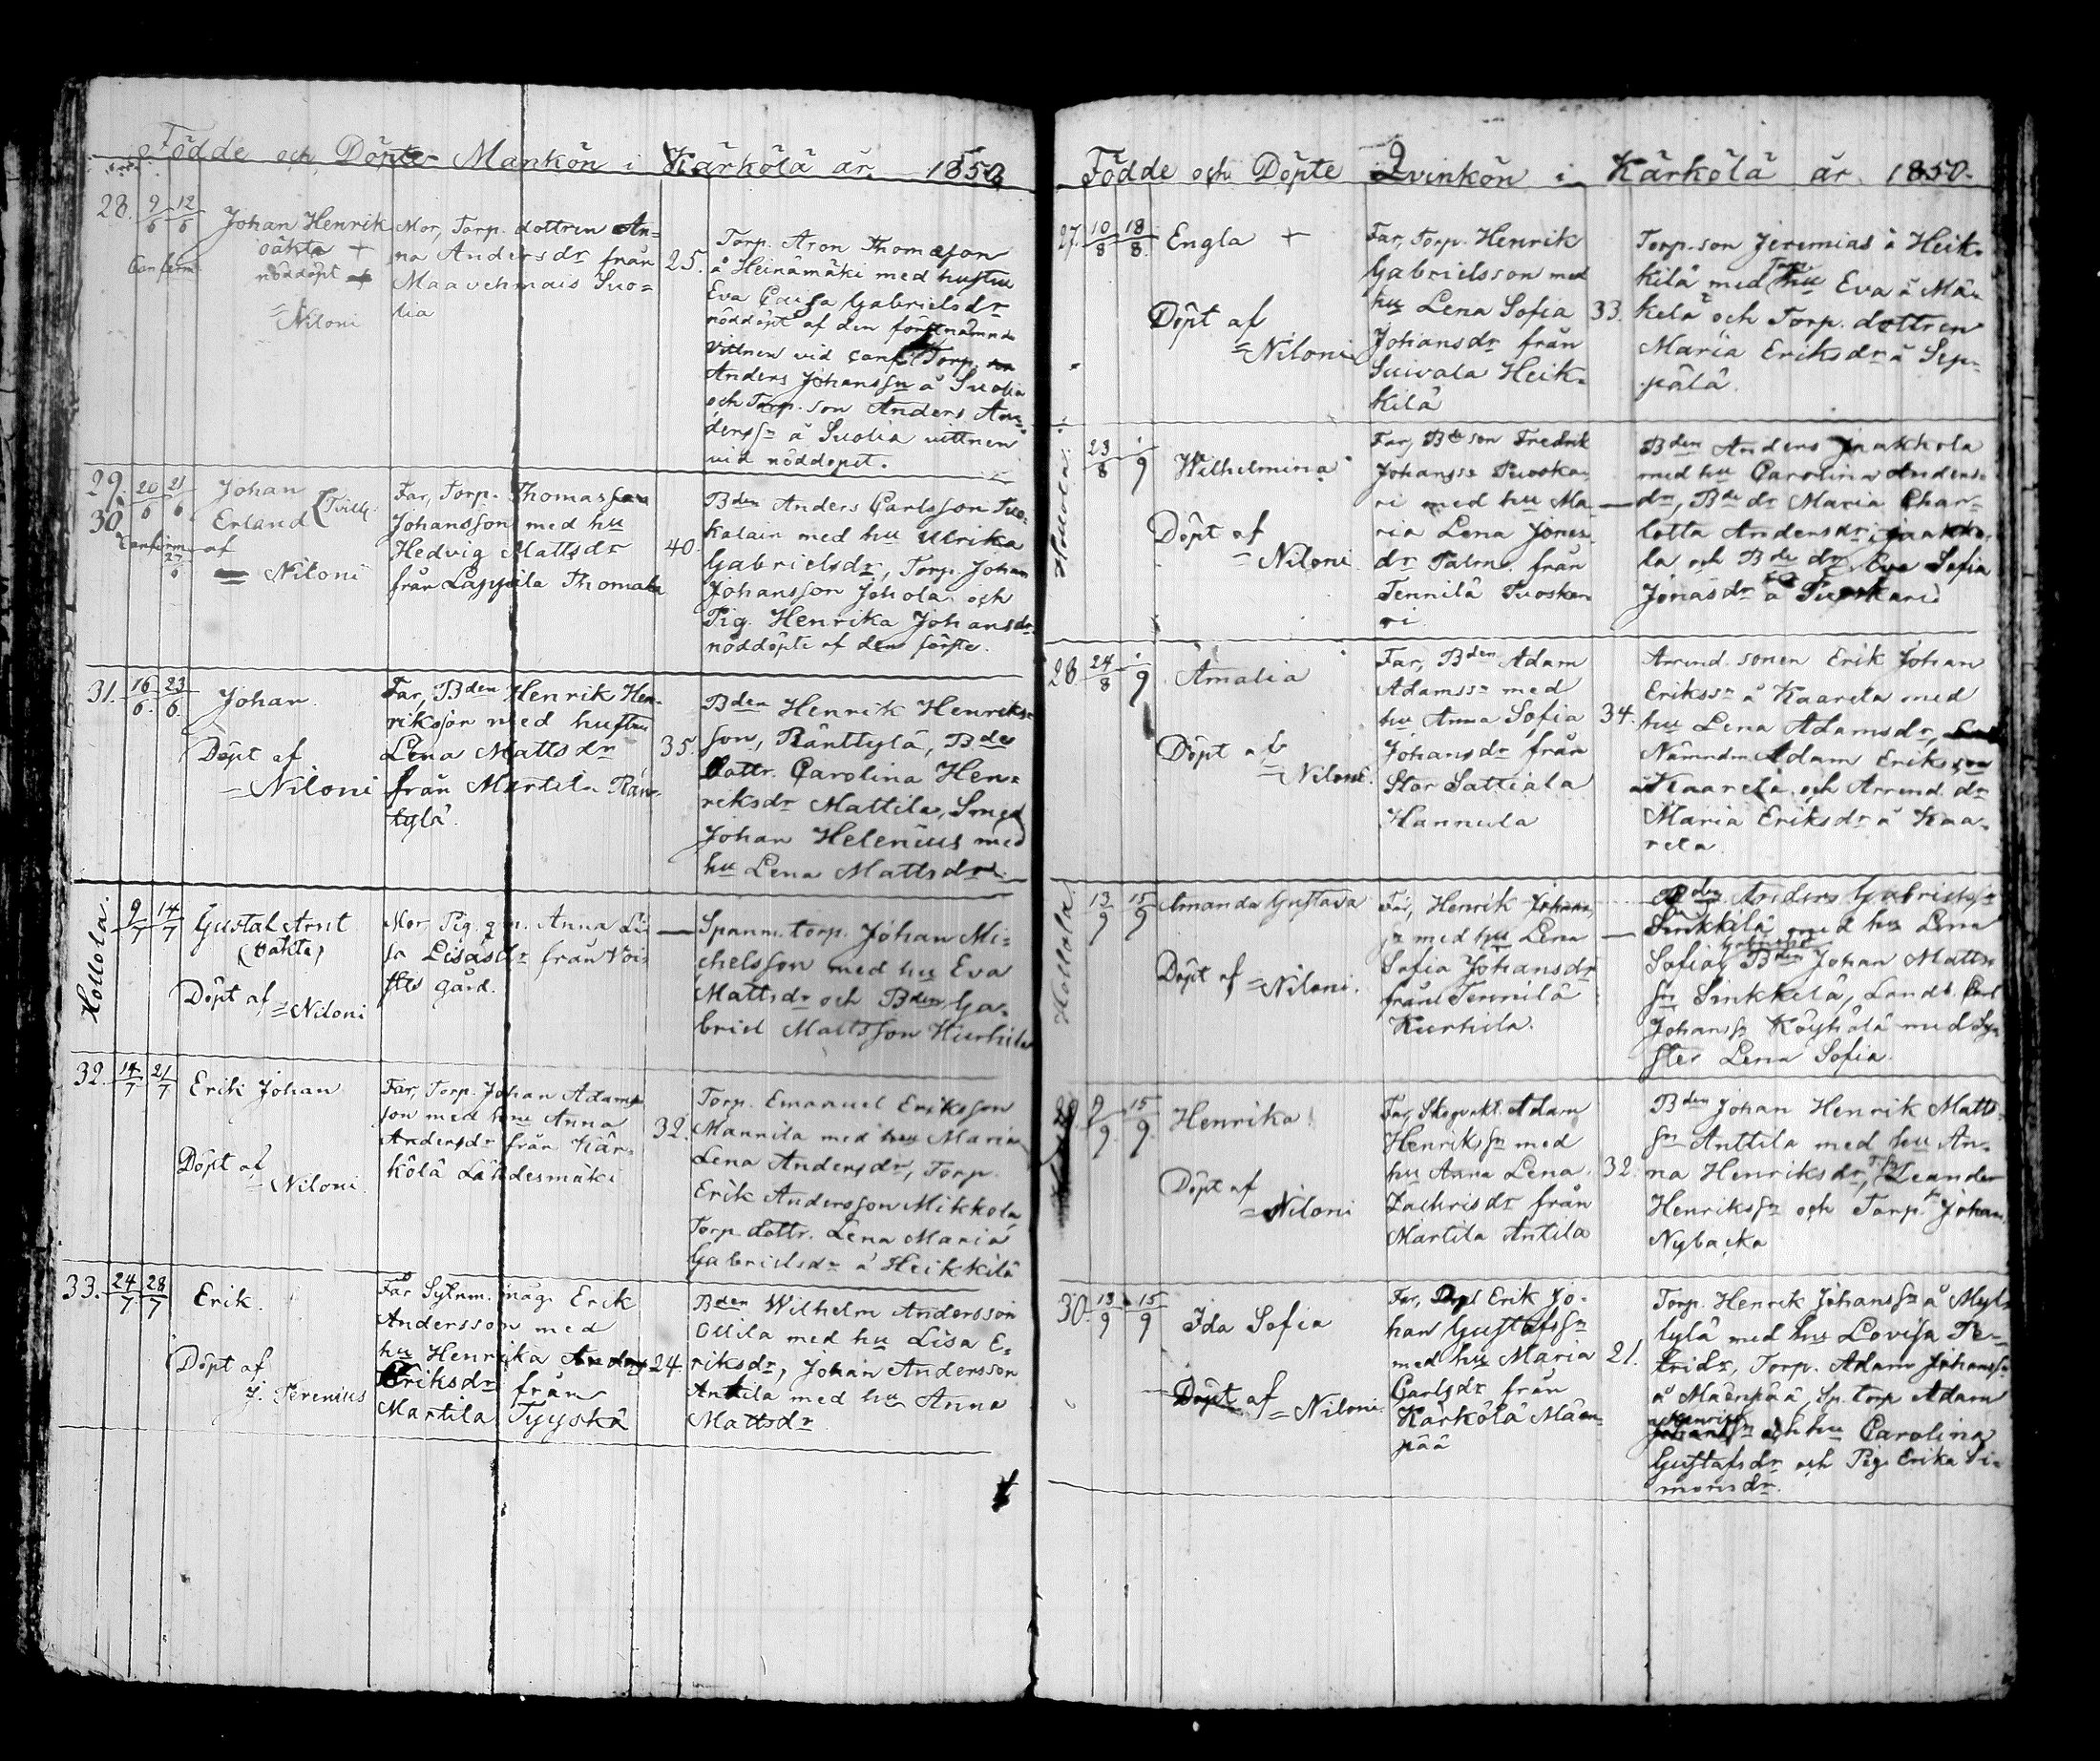 Födde och Döpte Mankön i Kärkölä år 1850
28. 9/6 12/6 Johan Henrik
oäkta +
Confirm. nöddöpt af
= Niloni
Mor, Torp. dottren An=
na Andersdr från
Maavehmais Suo=
lia
25.
Torp. Aron Thomasson
å Heinämäki med hustru
Eva Caisa Gabrielsdr
nöddöpt af den förstnämnde
Vittnen vid Conf. Torp.
Anders Johanssn å Suolia
och Torp. son Anders An=
derssn å Suolia vittnen
vid nöddopet.
29. 20/6 21/6 Johan
30. Erland } Tvill.
Confirm. af
= Niloni
Far, Torp. Thomas
Johansson med hu
Hedvig Mattsdr
från Lappila Thomala
40.
Bden Anders Carlsson Tuo=
kalain med hu Ulrika
Gabrielsdr, Torp. Johan
Johansson Johola och
Pig. Henrika Johansdr
nöddöpte af den förste.
31. 16/6 23/6 Johan.
Döpt af
= Niloni
Far, Bden Henrik Hen=
riksson med hustru
Lena Mattsdr
från Martila Rän=
tylä.
35.
Bden Henrik Henriks=
son, Ränttylä, Bde
dottr. Carolina Hen=
reksdr Mattila, Smed
Johan Helenius med
hu Lena Mattsdr
Hollola. 9/7 14/7 Gustaf Arnt
(oäkta)
Döpt af = Niloni
Mor Pig. qm. Anna Li
sa Lisasdr från Voi=
stes gård.
Spanm. torp. Johan Mi=
chelsson med hu Eva
Mattsdr och Bden Ga=
briel Mattsson Hurhila
32. 14/7 21/7 Erik Johan
Döpt af
= Niloni.
Far, Torp. Johan Adams
son med hu Anna
Andersdr från Kär=
kölä Lähdesmäki
32.
Torp. Emanuel Eriksson
Mannila med hu Maria
Lena Andersdr, Torp.
Erik Andersson Mikkola
Torp. dottr. Lena Maria
Gabrielsdr å Heikkilä
33. 24/7 28/7 Erik.
Döpt af
J. Perenius
Far Sytnm. måg Erik
Andersson med
hu Henrika
Eriksdr från
Martila Tyyskä
24.
Bden Wilhelm Andersson
Ollila med hu Lisa E=
riksdr, Johan Andersson
Anttila med hu Anna
Mattsdr
Födde och Döpte Qvinkön i Kärkölä år 1850.
27. 10/8 18/8 Engla +
Döpt af
= Niloni
Far, Torp. Henrik
Gabrielsson med
hu Lena Sofia
Johansdr från
Suivala Heik=
kilä
33.
Torp. son Jeremias å Heik=
kilä med hu Eva å Mä=
kelä och Torp. dottren
Maria Eriksdr å Sep=
pälä.
Hollola. 23/8 1/9 Wilhelmina
Döpt af
= Niloni
Far, Bde son Fredrik
Johanssn Tuoska=
ri med hu Ma=
ria Lena Jonas=
dr Palm från
Tennilä Tuoska
ri.
Bden Anders Jaakkola
med hu Carolina Anders=
dr, Bde dr Maria Char=
lotta Andersdr, Jaakko=
la och Bde dr Eva Sofia
Jonasdr å Tuoskari
28 24/8 1/9 Amalia
Döpt af
= Niloni.
Far, Bden Adam
Adamssn med
hu Anna Sofia
Johansdr från
Stor Sattiala
Hannula
34.
Arrend. sonen Erik Johan
Erikssn å Kaarela med
hu Lena Adamsdr,
Nämndm. Adam Eriksson
å Kaarela och Arrend. dr
Maria Eriksdr å Kaa=
rela
Hollola. 13/9 15/9 Amanda Gustava
Döpt af = Niloni.
Far, Henrik Johans
sn med hu Lena
Sofia Johansdr
från Tennilä
Kurhila.
Bden Anders Gabrielssn
Sinkkilä med hu Lena
Sofia, Bden Johan Matts
sn Sinkkilä, Landb. Carl
Johanssn Köyhölä med Sy=
ster Lena Sofia.
29. 9/9 15/9 Henrika
Döpt af
= Niloni
Far, Skogvakt. Adam
Henrikssn med
hu Anna Lena
Zachrisdr från
Martila Antila
32.
Bden Johan Henrik Matts=
sn Anttila med hu An=
na Henriksdr, Leander
Henrikssn och Torp. Johan
Nybacka
30. 13/9 15/9 Ida Sofia
Döpt af = Niloni.
Far, Erik Jo=
han Gustafssn
med hu Maria
Carlsdr från
Kärkölä Mäen=
pää
21.
Torp. Henrik Johanssn å Myl=
lylä med hu Lovisa Pe=
tridr, Torp. Adam Johanssn
å Mäenpää, Sp. torp. Adam
Henrikssn och hu Carolina
Gustafsdr och Pig. Erika Si=
monsdr.